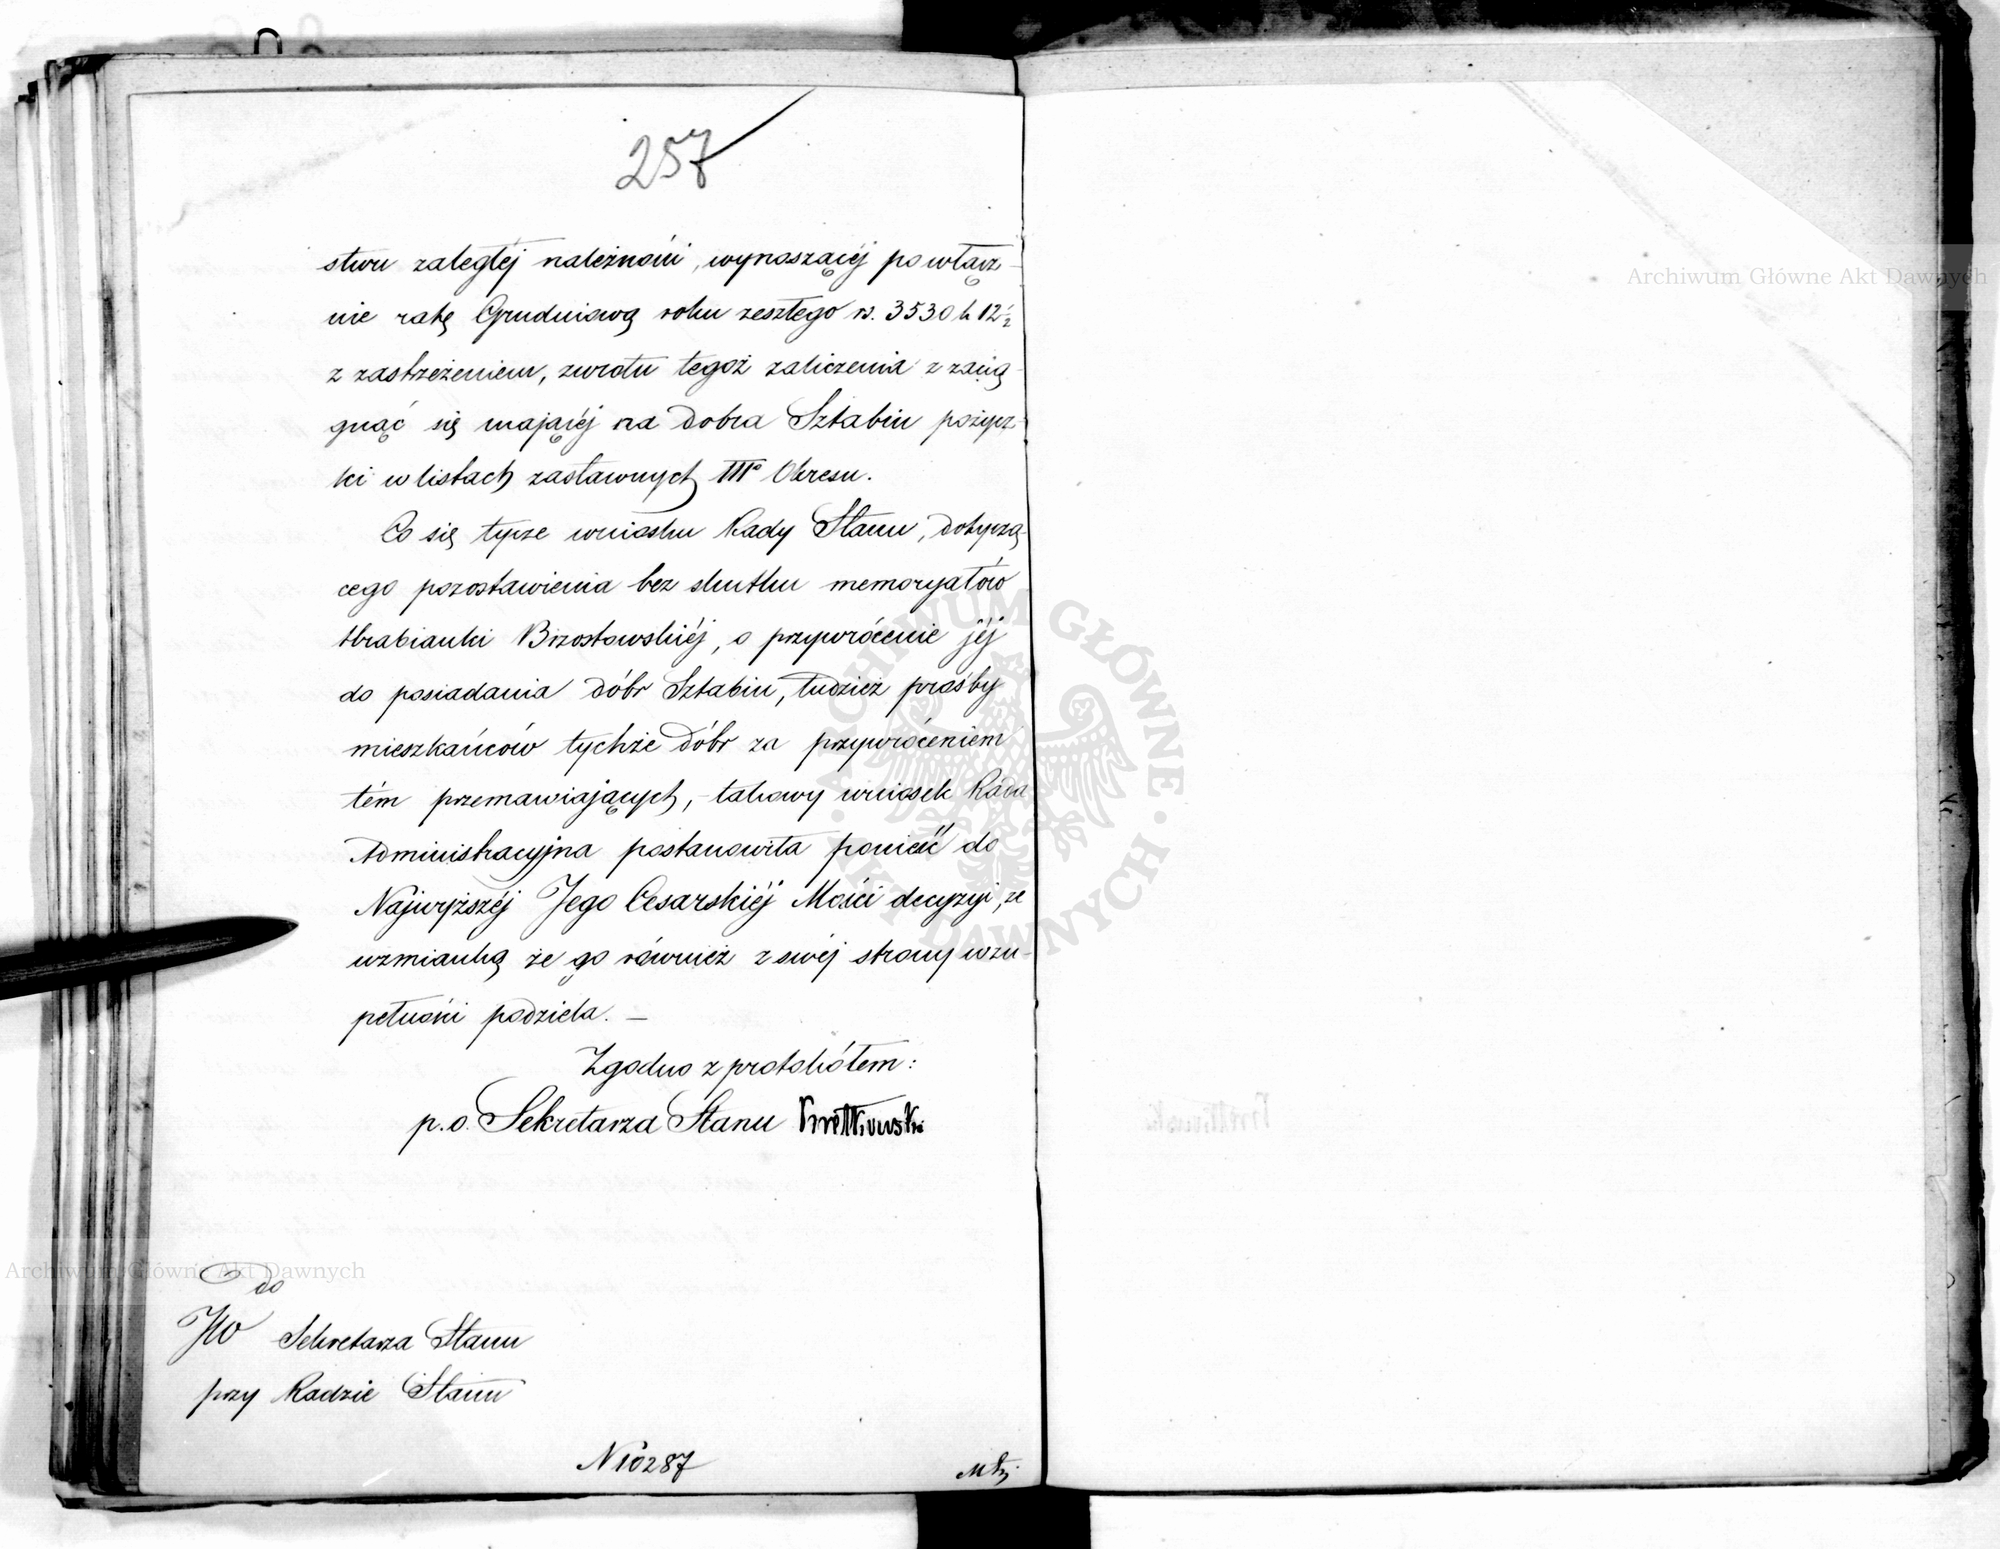 257
stwu zaległéj należności, wynoszącéj powłącz-
nie ratę Grudniową roku zeszłego rs. 3530 k 12½
z zastrzeżeniem, zwrotu tegoż zaliczenia z zacią-
gnąć się mającéj na dobra Sztabin pożycz-
ki w listach zastawnych IIIº Okresu.
Co się tycze wniosku Rady Stanu, dotyczą-
cego pozostawienia bez skutku memoryałów
Hrabianki Brzostowskiéj, o przywrócenie jéj
do posiadania dóbr Sztabin, tudzież prośby
mieszkańców tychże dóbr za przywróceniem
tém przemawiających, – takowy wniosek Rada
Administracyjna postanowiła ponieść do
Najwyższéj Jego Cesarskiéj Mości decyzyi, ze
wzmianką że go również z swéj strony w zu-
pełności podziela. –
Zgodno z protokółem:
p.o. Sekretarza Stanu Kretkowski
do
JW Sekretarza Stanu
przy Radzie Stanu
N 10287
Archiwum Główne Akt Dawnych
Archiwum Główne Akt Dawnych
ARCHIWUM GŁÓWNE AKT DAWNYCH